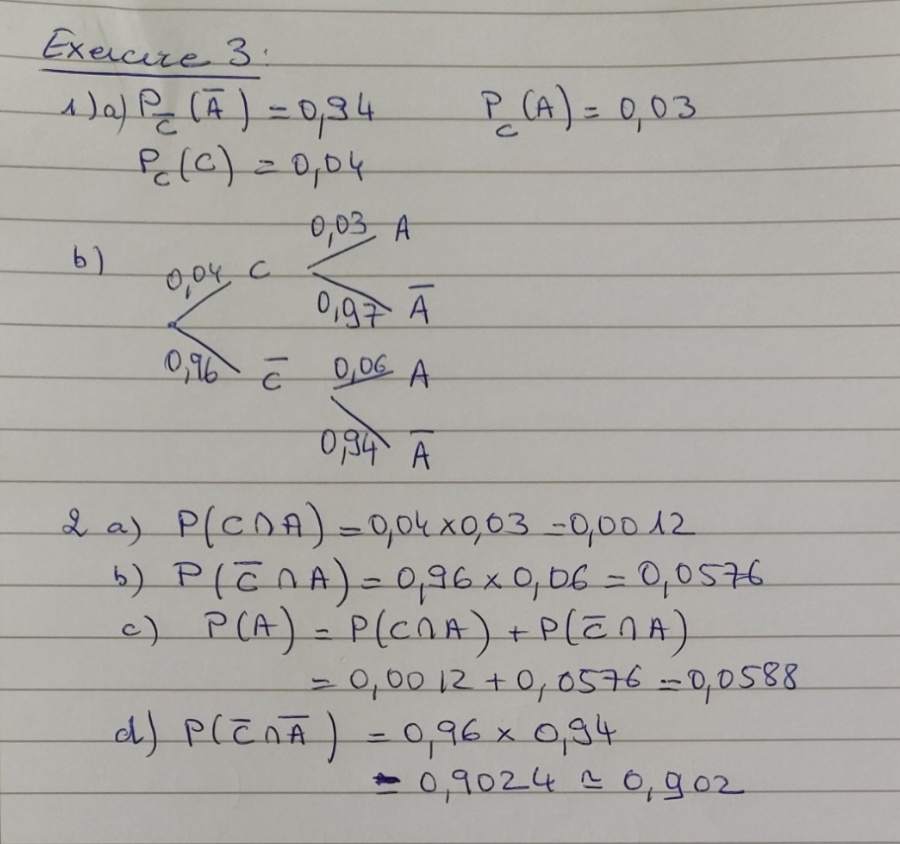 Exercice 3:
1)a) P_C̅(A̅) = 0,94 P_C(A) = 0,03
P_C(C) = 0,04
0,03 A
b) 0,04 C
0,97 A̅
0,96 C̅ 0,06 A
0,94 A̅
2 a) P(C∩A) = 0,04×0,03 = 0,0012
b) P(C̅∩A) = 0,96×0,06 = 0,0576
c) P(A) = P(C∩A) + P(C̅∩A)
= 0,0012 + 0,0576 = 0,0588
d) P(C̅∩A̅) = 0,96 × 0,94
= 0,9024 ≃ 0,902